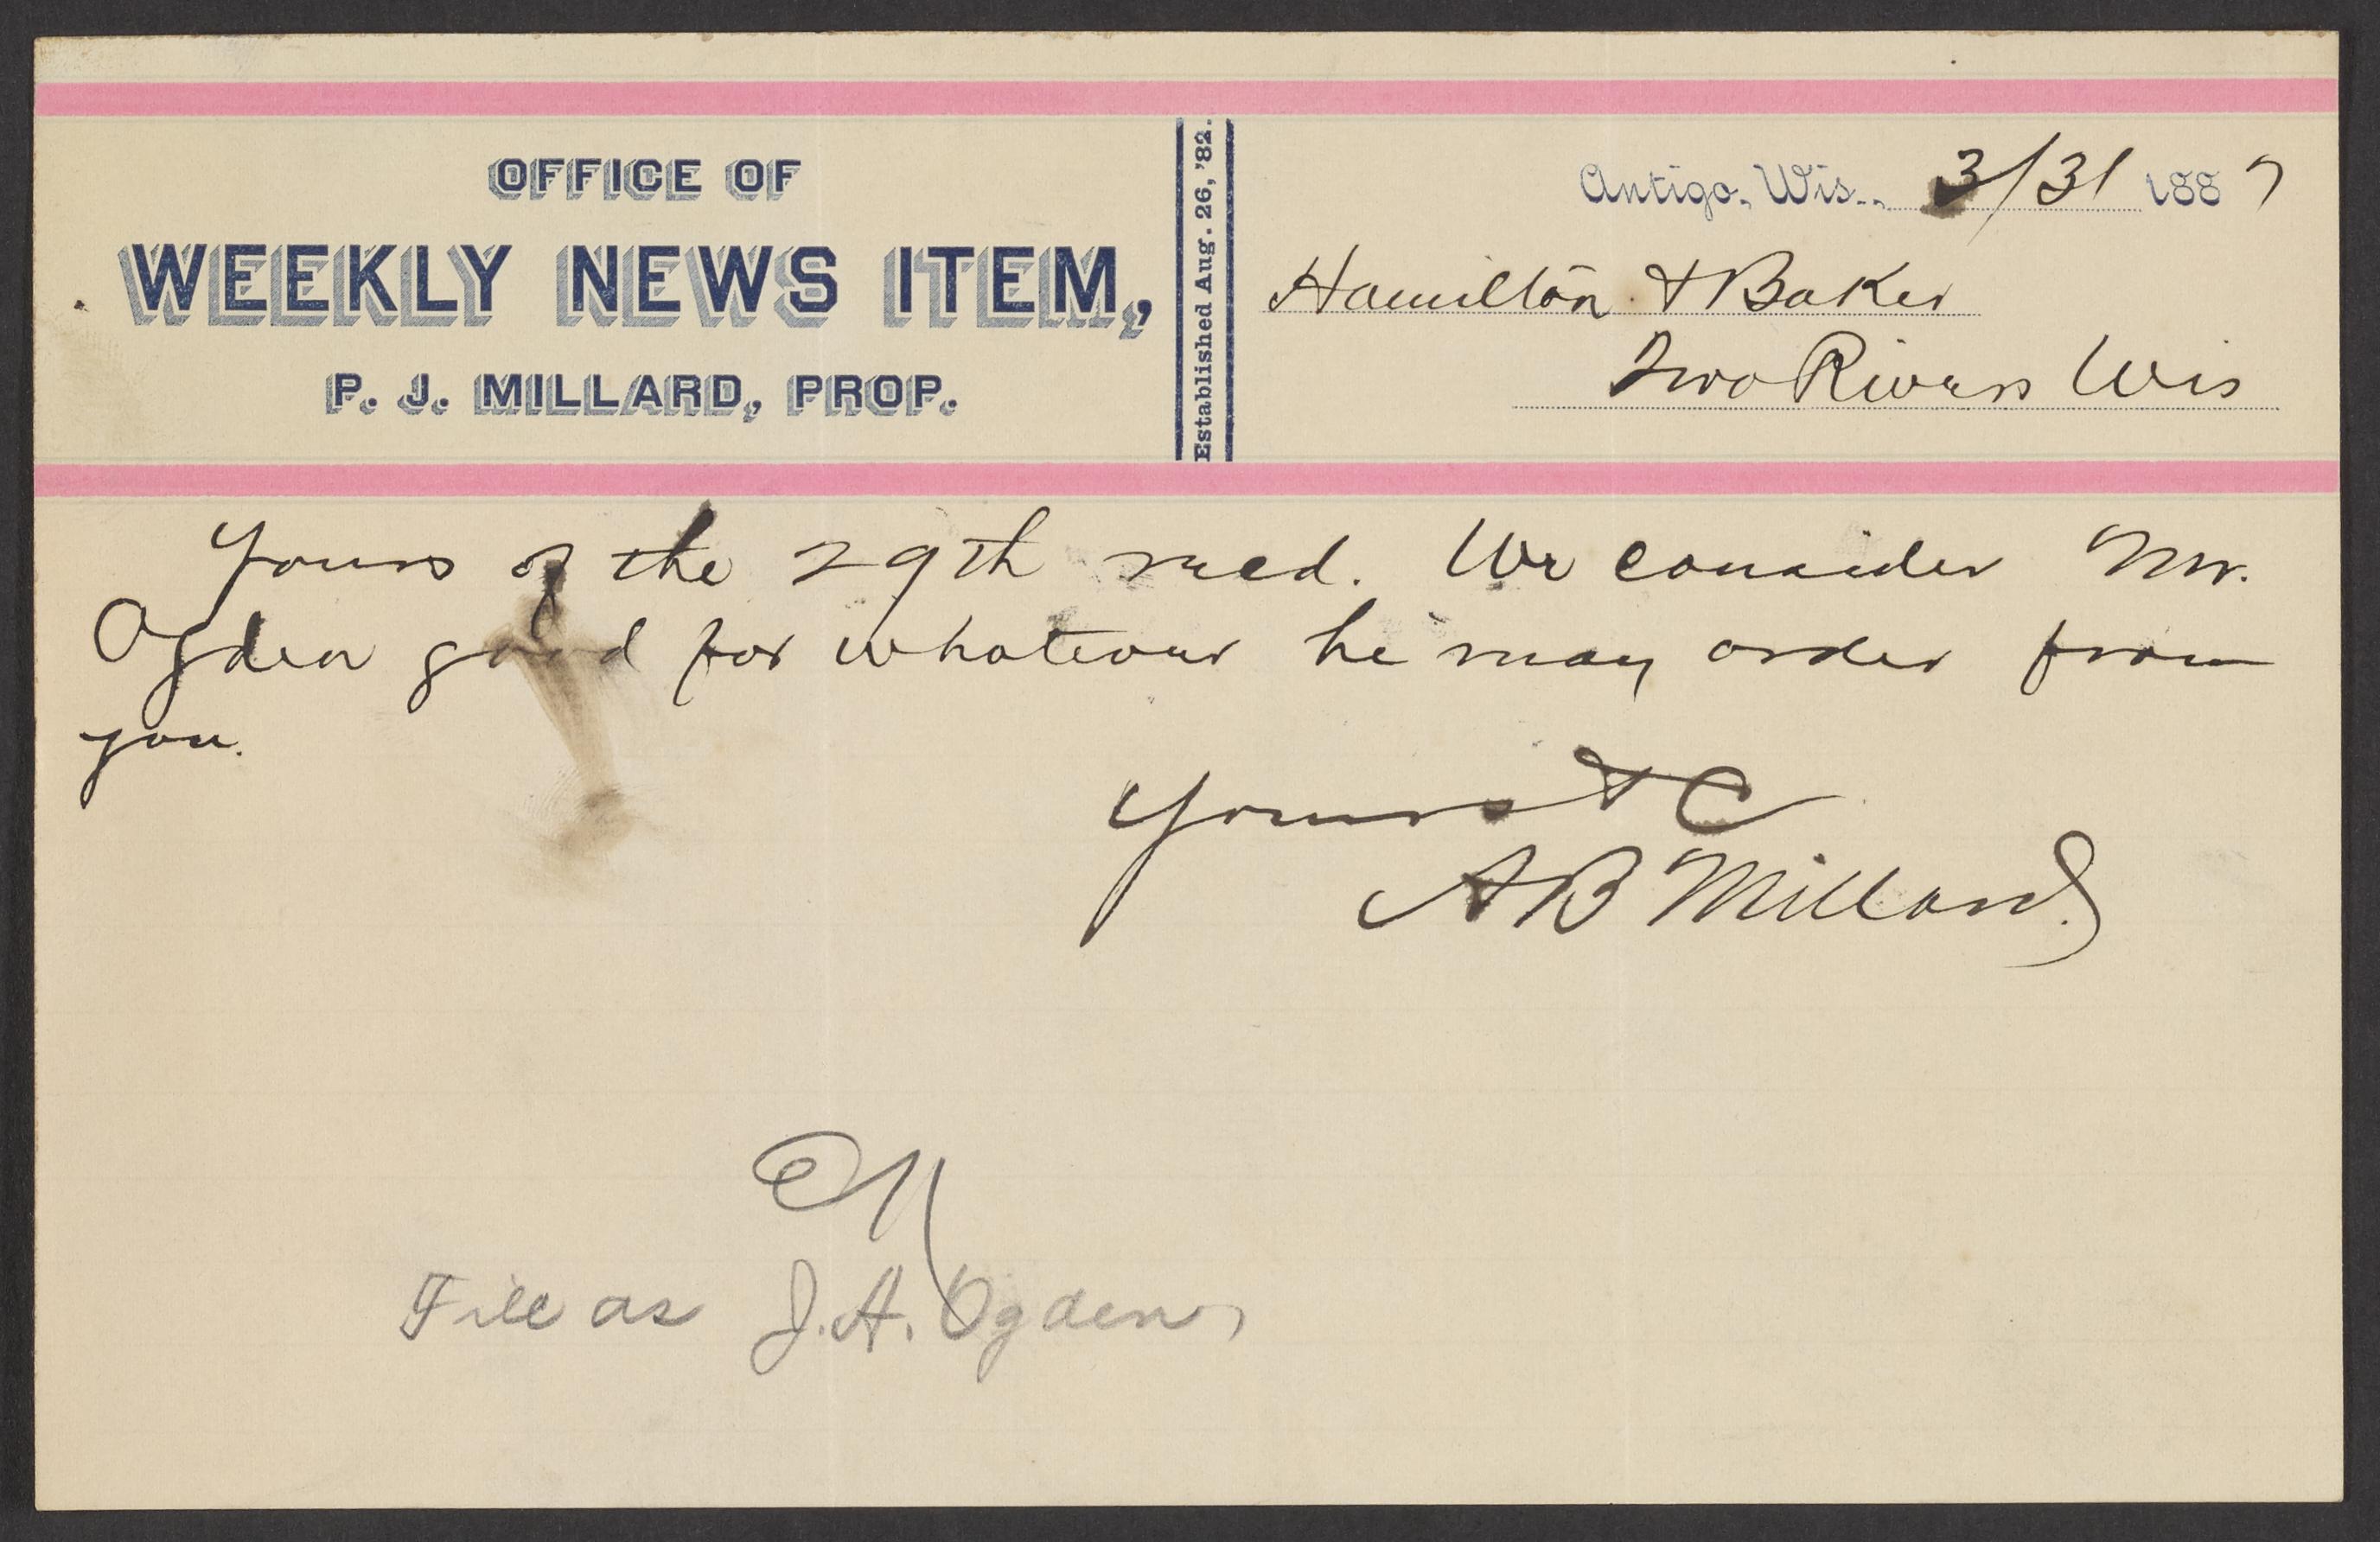 OFFICE OF
WEEKLY NEWS ITEM,
P. J. MILLARD, PROP.
Established Aug. 26, '82.
Antigo, Wis., 3/31 1887
Hamilton & Baker
Two Rivers Wis
Yours of the 29th recd. We consider Mr.
Ogden good for whatever he may order from
you.
Yours &C
AB Millard.
File as J.A. Ogden,